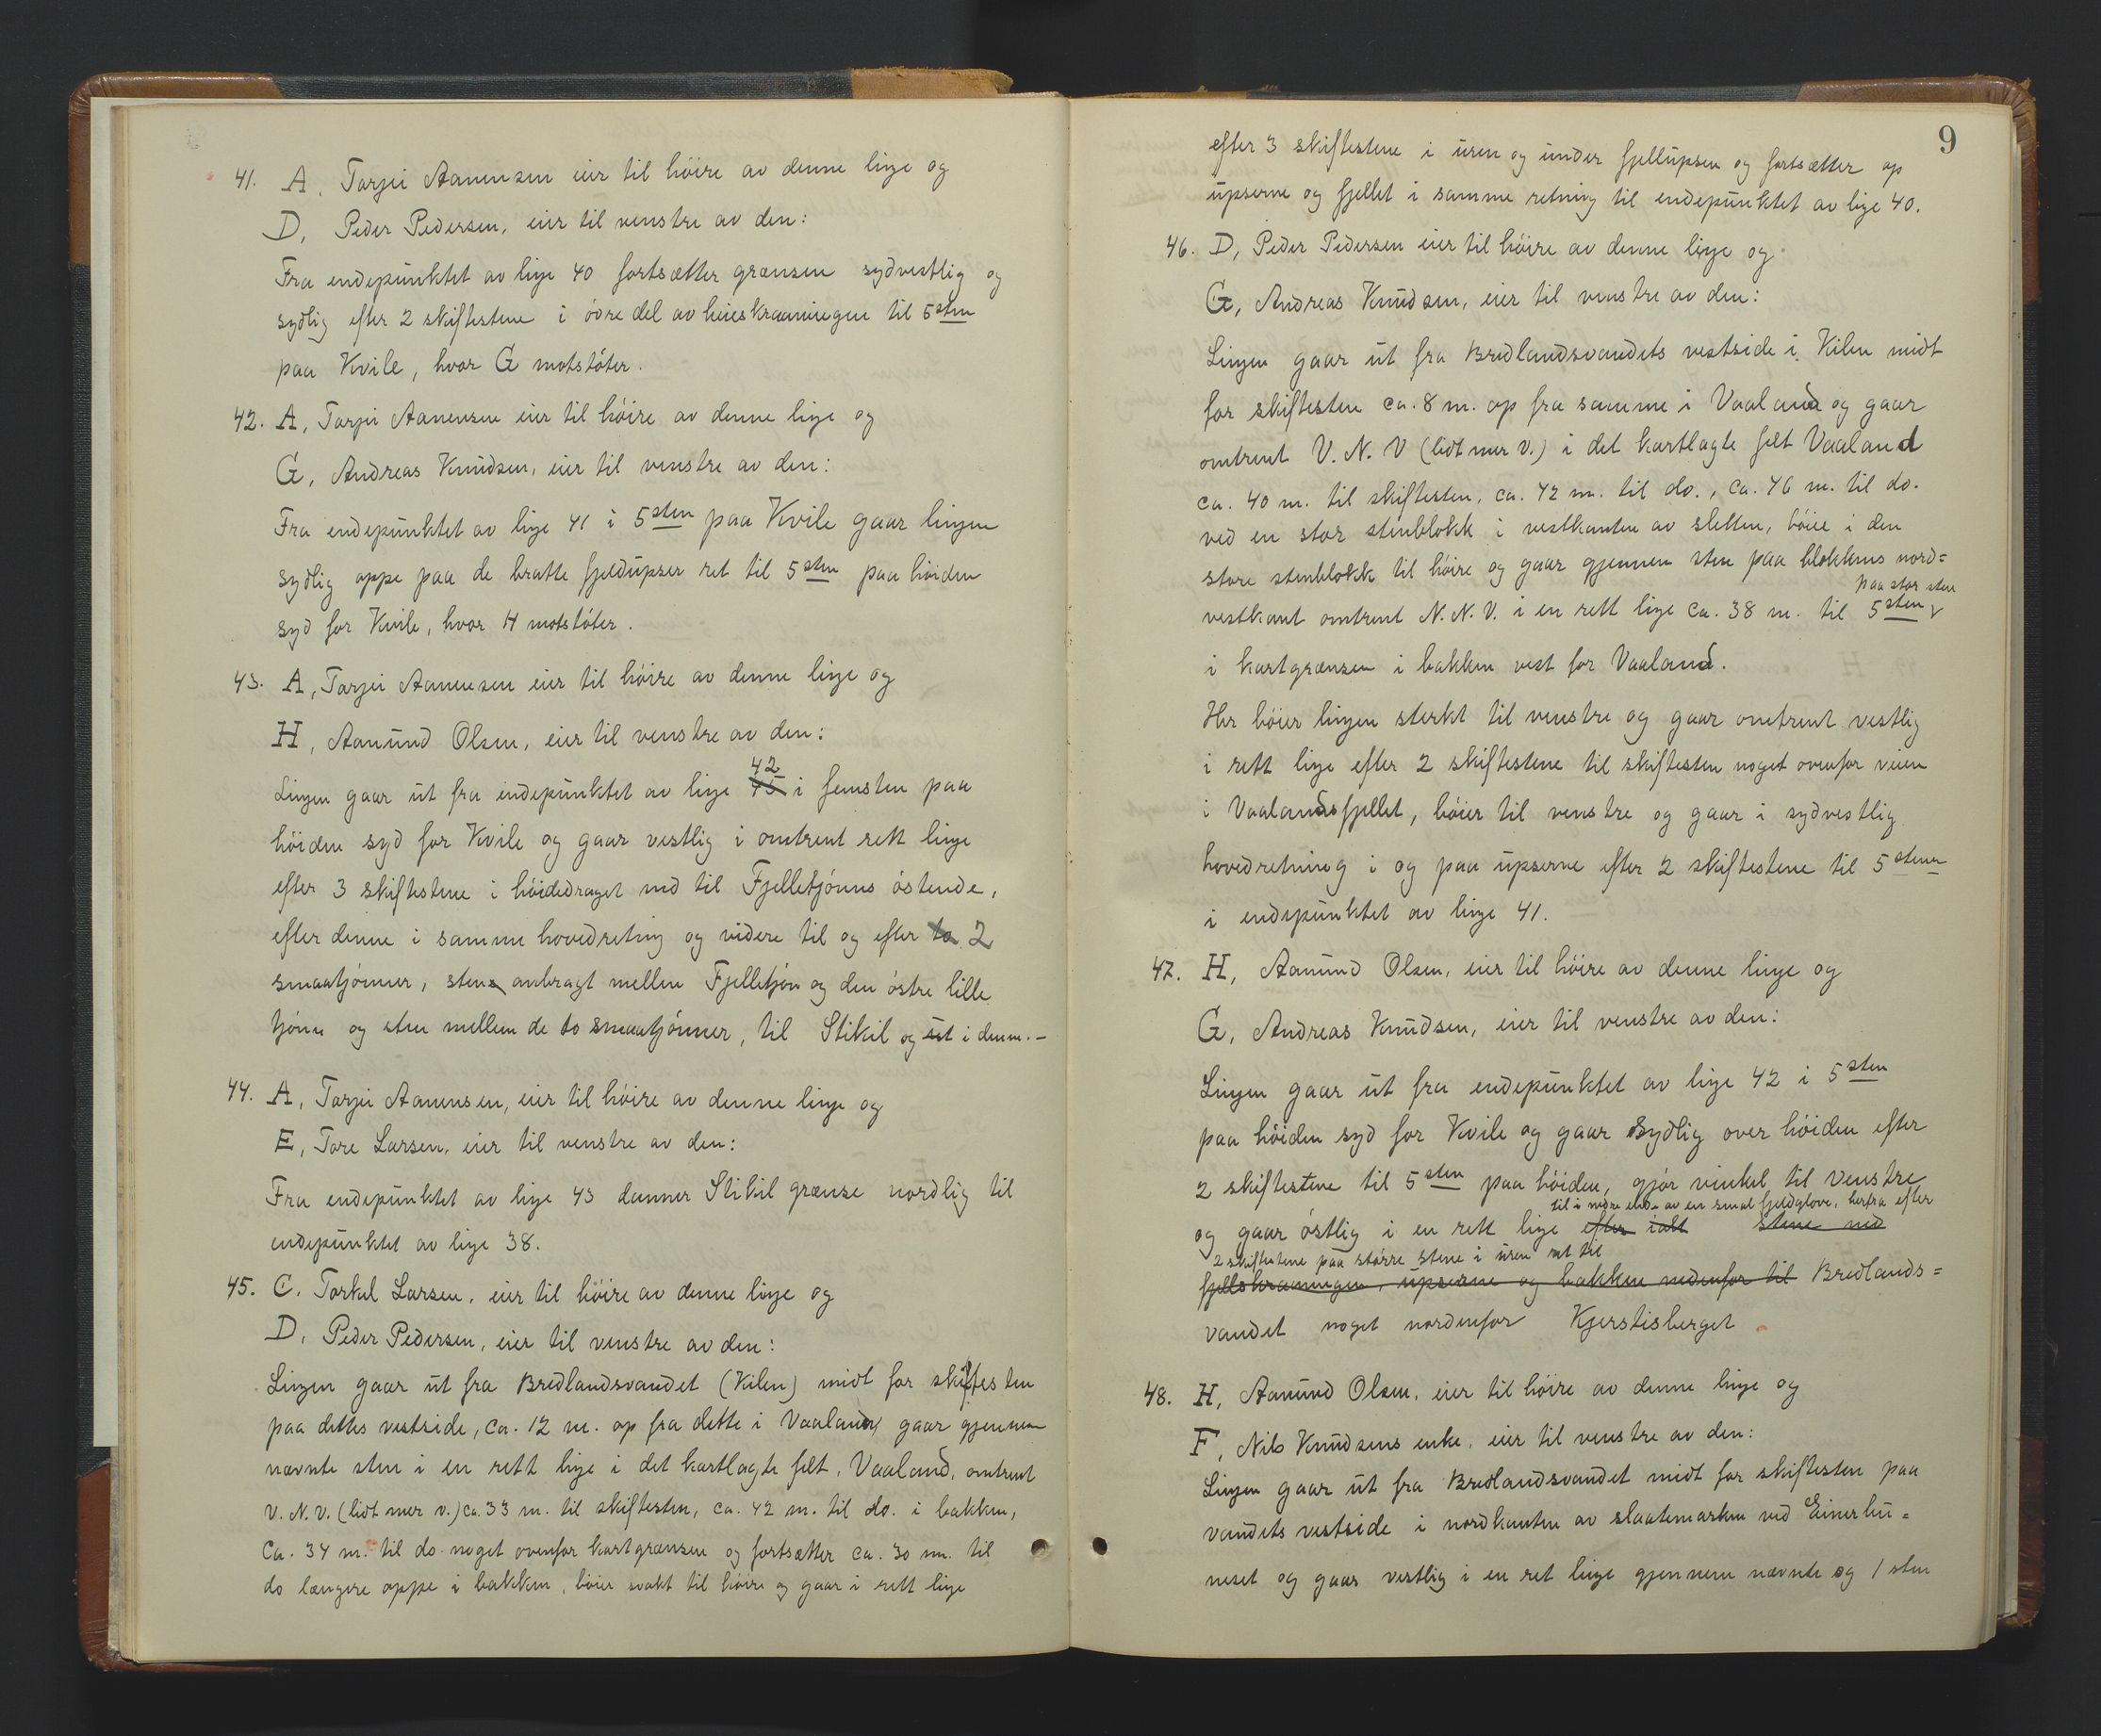 41. A. Tarjei Aanensen eier til höire av denne linje og
D, Peder Pedersen, eier til venstre av den:
Fra endepunktet av linje 40 fortsætter grænsen sydvestlig og
sydlig efter 2 skiftestene i övre del av heieskraaningen til 5sten
paa Kvile, hvor G motstöter.
42. A, Tarjei Aanensen eier til höire av denne linje og
G, Andreas Knudsen, eier til venstre av den:
Fra endepunktet av linje 41 i 5sten paa Kvile gaar linjen
sydlig oppe paa de bratte fjeldupser ret til 5sten paa höiden
syd for Kvile, hvor H motstöter.
43. A, Tarjei Aanensen eier til höire av denne linje og
H, Aanund Olsen, eier til venstre av den:
42
Linjen gaar ut fra endepunktet av linje 43 i femsten paa
höiden syd for Kvile og gaar vestlig i omtrent rett linje
efter 3 skiftestene i höidedraget ned til Fjelletjönns östende,
efter denne i samme hovedretning og videre til og efter to 2
smaatjönner, stens anbragt mellem Fjelletjön og den östre lille
tjönn og sten mellem de to smaatjönner, til Stikil og ut i denne.-
44. A, Tarjei Aanensen, eier til höire av denne linje og
E, Tore Larsen, eier til venstre av den:
Fra endepunktet av linje 43 danner Stikil grænse nordlig til
endepunktet av linje 38.
45. C. Torkel Larsen, eier til höire av denne linje og
D, Peder Pedersen, eier til venstre av den:
Linjen gaar ut fra Bredlandsvandet (Kilen) midt for skiftesten
paa dettes vestside, ca. 12 m. op fra dette i Vaaland, gaar gjennem
nævnte sten i en rett linje i det kartlagte felt, Vaaland, omtrent
V. N. V. (lidt mer v.) ca. 33 m. til skiftesten, ca. 42 m. til do. i bakken,
Ca. 34 m. til do noget ovenfor kartgrænsen og fortsætter ca. 30 m. til
do længere oppe i bakken, böier svakt til höire og gaar i rett linje
9
efter 3 skiftestene i uren og under fjellupsen og fortsætter op
upserne og fjellet i samme retning til endepunktet av linje 40.
46. D, Peder Pedersen eier til höire av denne linje og
G, Andreas Knudsen, eier til venstre av den:
Linjen gaar ut fra Bredlandsvandets vestside i Kilen midt
for skiftesten ca. 8 m. op fra samme i Vaaland og gaar
omtrent V. N. V (lidt mer V.) i det kartlagte felt Vaaland
ca. 40 m. til skiftesten, ca. 42 m. til do., ca. 46 m. til do.
ved en stor stenblokk i vestkanten av sletten, böier i den
store stenblokk til höire og gaar gjennem sten paa blokkens nord=
paa stor sten
vestkant omtrent N. N. V. i en rett linje ca. 38 m. til 5sten
i kartgrænsen i bakken vest for Vaaland.
Her böier linjen sterkt til venstre og gaar omtrent vestlig
i rett linje efter 2 skiftestene til skiftesten noget ovenfor veien
i Vaalandsfjellet, böier til venstre og gaar i sydvestlig
hovedretning i og paa upserne efter 2 skiftestene til 5stenen
i endepunktet av linje 41.
47. H, Aanund Olsen, eier til höire av denne linje og
G, Andreas Knudsen, eier til venstre av den:
Linjen gaar ut fra endepunktet av linje 42 i 5sten
paa höiden syd for Kvile og gaar sydlig over höiden efter
2 skiftestene til 5sten paa höiden, gjör vinkel til venstre
til i nedre ende av en smal fjeldglove, herfra efter
og gaar östlig i en rett linje efter ialt stene ned
2 skiftestene paa större stene i uren ret til
fjellskraaningen, upserne og bakken nedenfor til Bredlands=
vandet noget nordenfor Kjerstisberget
48. H, Aanund Olsen, eier til höire av denne linje og
F, Nils Knudsens enke, eier til venstre av den:
Linjen gaar ut fra Bredlandsvandet midt for skiftesten paa
vandets vestside i nordkanten av slaatemarken ved Einerbu=
neset og gaar vestlig i en ret linje gjennem nævnte og 1 sten